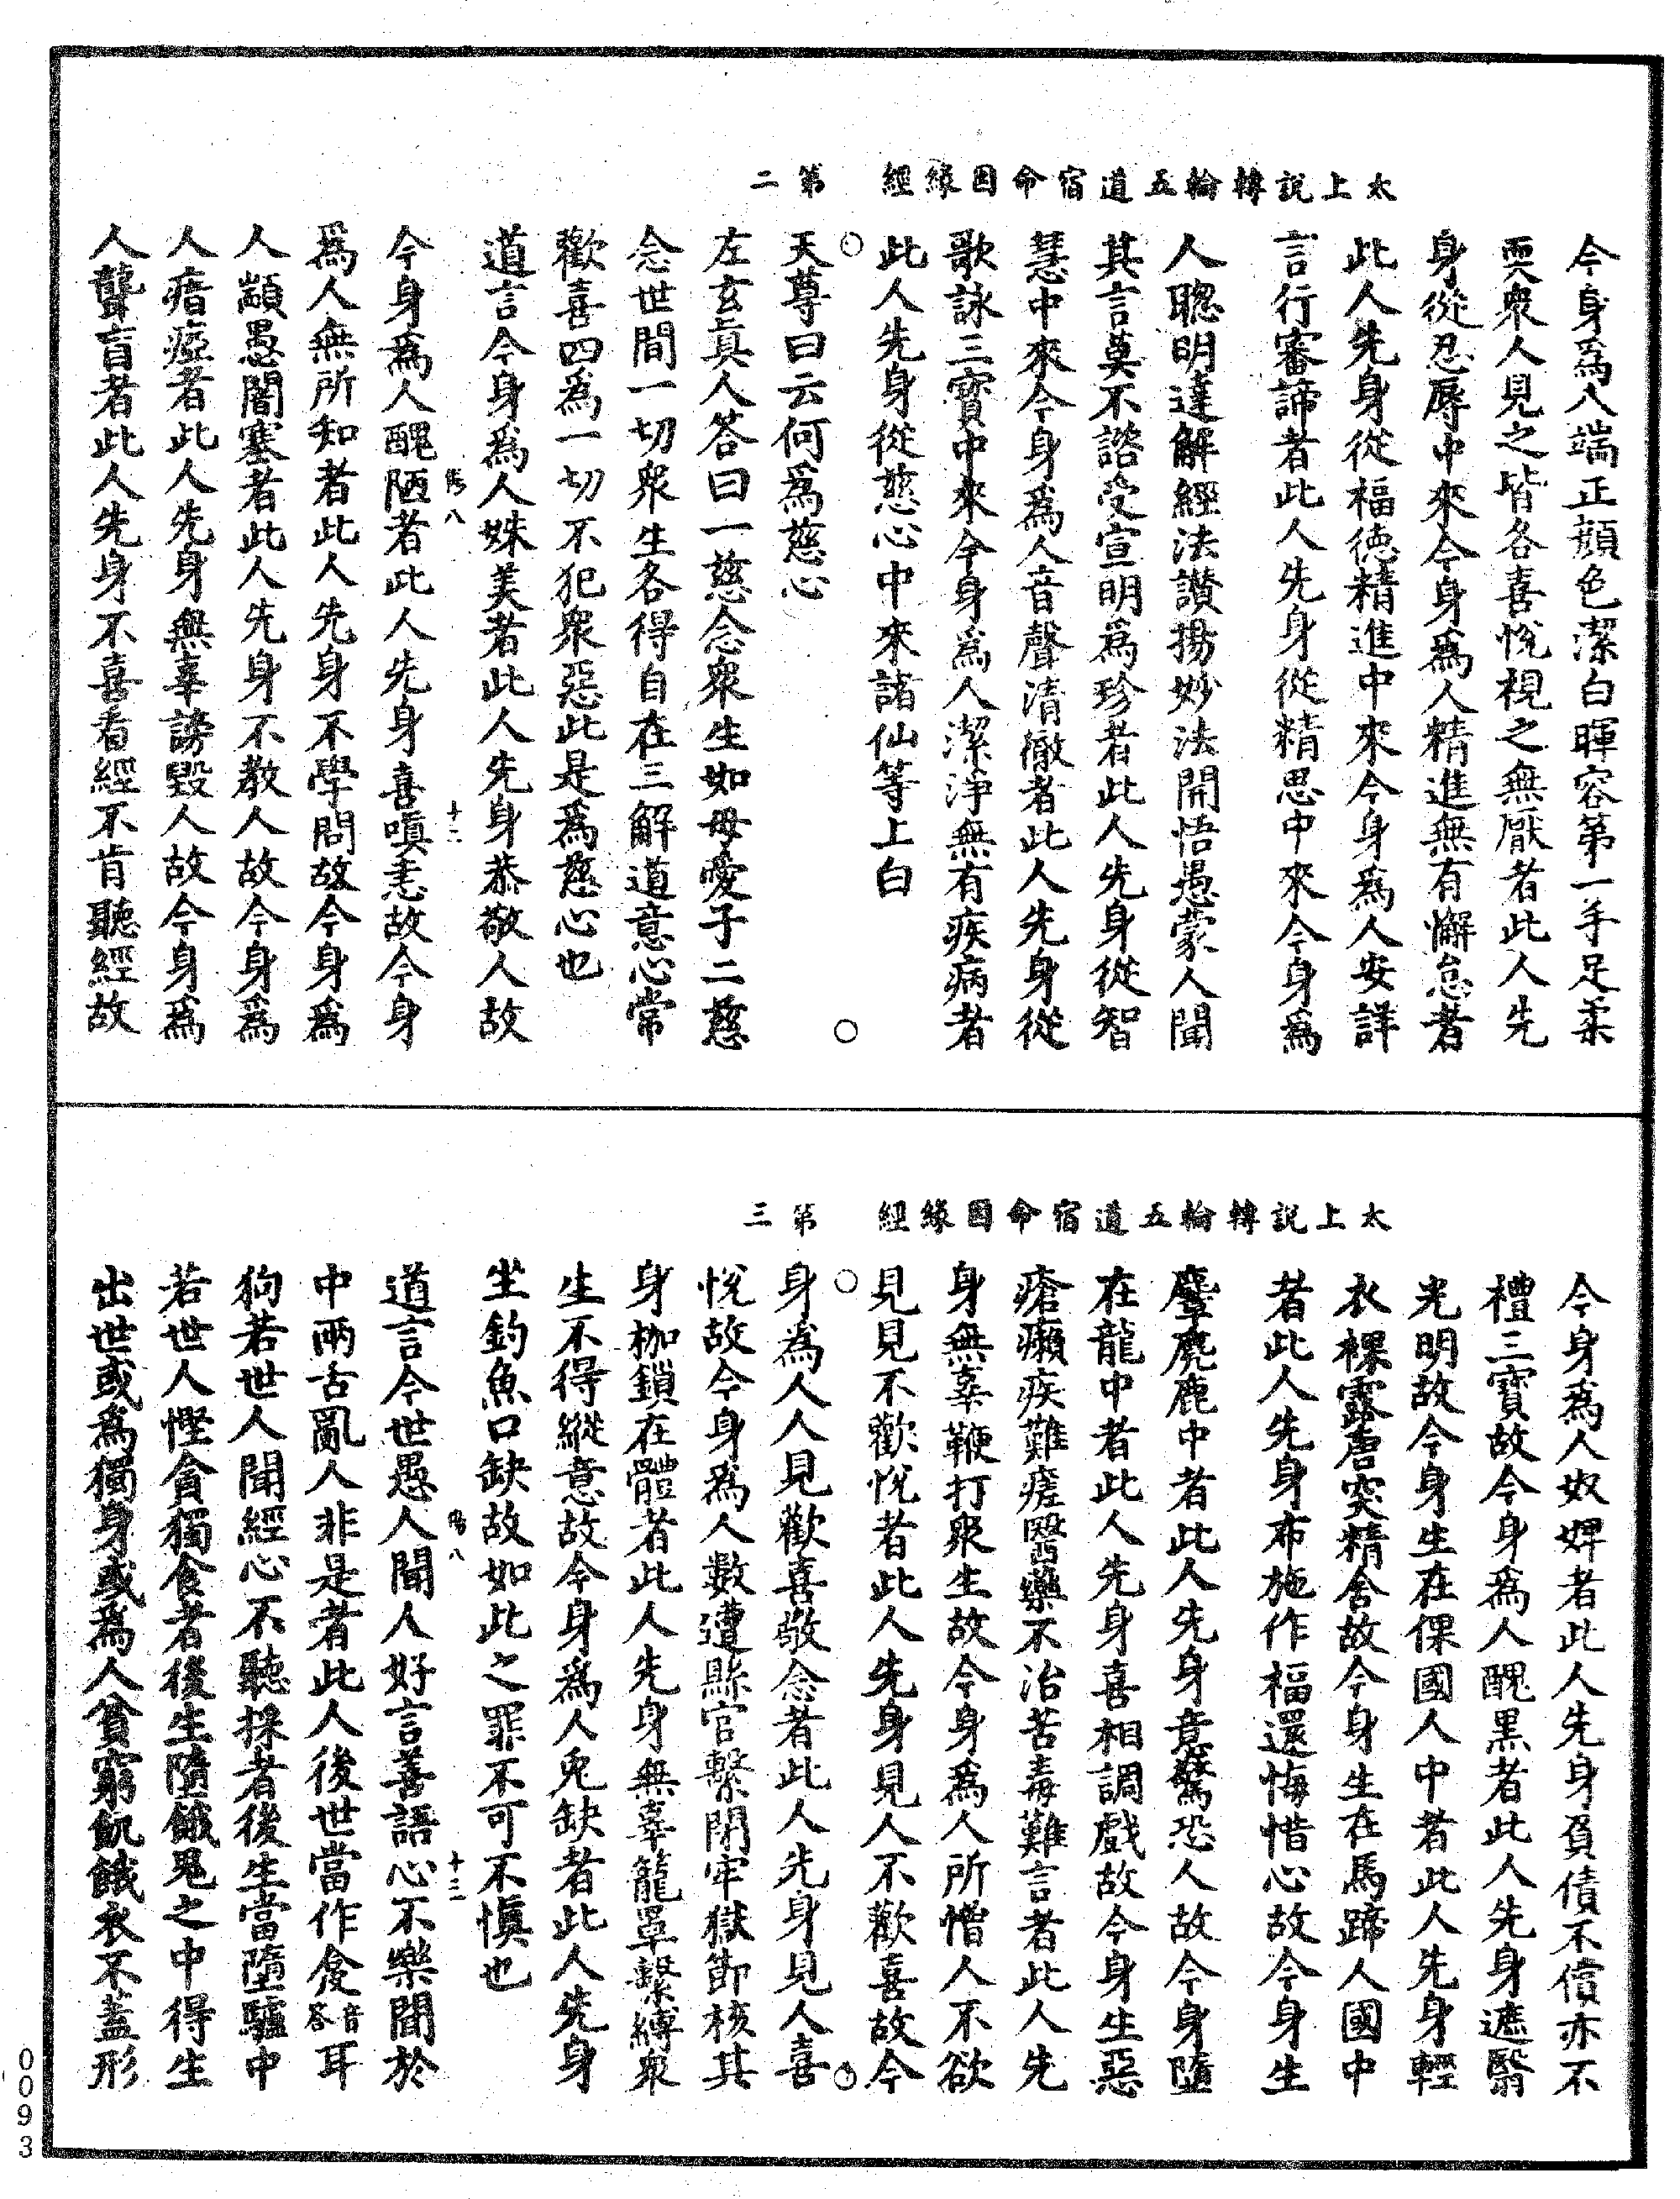 太上說轉輪五道宿命因緣經　第二
今身為人端正顏色潔白暉容第一手足柔
耎衆人見之皆各喜悅視之無厭者此人先
身從忍辱中來今身為人精進無有懈怠者
此人先身從福德精進中來今身為人安詳
言行審諦者此人先身從精思中來今身為
人聰明達解經法讚揚妙法開悟愚蒙人聞
其言莫不諮受宣明為珍者此人先身從智
慧中來今身為人音聲清徹者此人先身從
歌詠三寶中來今身為人潔淨無有疾病者
此人先身從慈心中來諸仙等上白
天尊曰云何為慈心
左玄真人答曰一慈念衆生如母愛子二慈
念世間一切衆生各得自在三解道意心常
歡喜四為一切不犯衆惡此是為慈心也
道言今身為人姝美者此人先身恭敬人故
今身為人醜陋者此人先身喜嗔恚故今身
為人無所知者此人先身不學問故今身為
人顓愚闇塞者此人先身不教人故今身為
人瘖瘂者此人先身無辜謗毀人故今身為
人聾盲者此人先身不喜看經不肯聽經故
八　十二
太上說轉輪五道宿命因緣經　第三
今身為人奴婢者此人先身負債不償亦不
禮三寶故今身為人醜黑者此人先身遮翳
光明故今身生在倮國人中者此人先身輕
衣裸露唐突精舍故今身生在馬蹄人國中
者此人先身布施作福還悔惜心故今身生
麞麂鹿中者此人先身意驚恐人故今身墮
在龍中者此人先身喜相調戲故今身生惡
瘡癩疾難瘥醫藥不治苦毒難言者此人先
身無辜鞭打衆生故今身為人所憎人不欲
見見不歡悅者此人先身見人不歡喜故今
身為人人見歡喜敬念者此人先身見人喜
悅故今身為人數遭縣官繫閉牢獄節核其
身枷鎖在體者此人先身無辜籠罩繫縛衆
生不得縱意故今身為人兎缺者此人先身
坐釣魚口缺故如此之罪不可不慎也
道言今世愚人聞人好言善語心不樂聞於
中兩舌亂人非是者此人後世當作耷音答耳
狗若世人聞經心不聽採者後生當墮驢中
若世人慳貪獨食者後生墮餓鬼之中得生
出世或為獨身或為人貧窮飢餓衣不蓋形
八　十三
0093